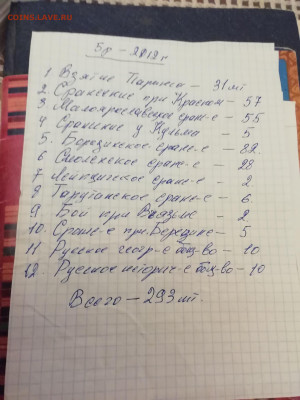 COINSSLAVE.RU
5р - 2012 г
1 Взятие Парижа - 31 шт
2. Сражение при Красном - 57
3 Малоярославецк сраж-е - 55
4 Сражение у Кульма - 5
5. Бородинское сраж-е - 82
6 Смоленское сраж-е - 28
7 Лейпцигское сраж-е - 2
8 Тарутинское сраж-е - 6
9. Бой при Вязьме - 2
10. Сраж-е при Березине - 5
11 Русское геогр-е общ-во - 10
12. Русское историч-е общ-во - 10
Всего - 293 шт.